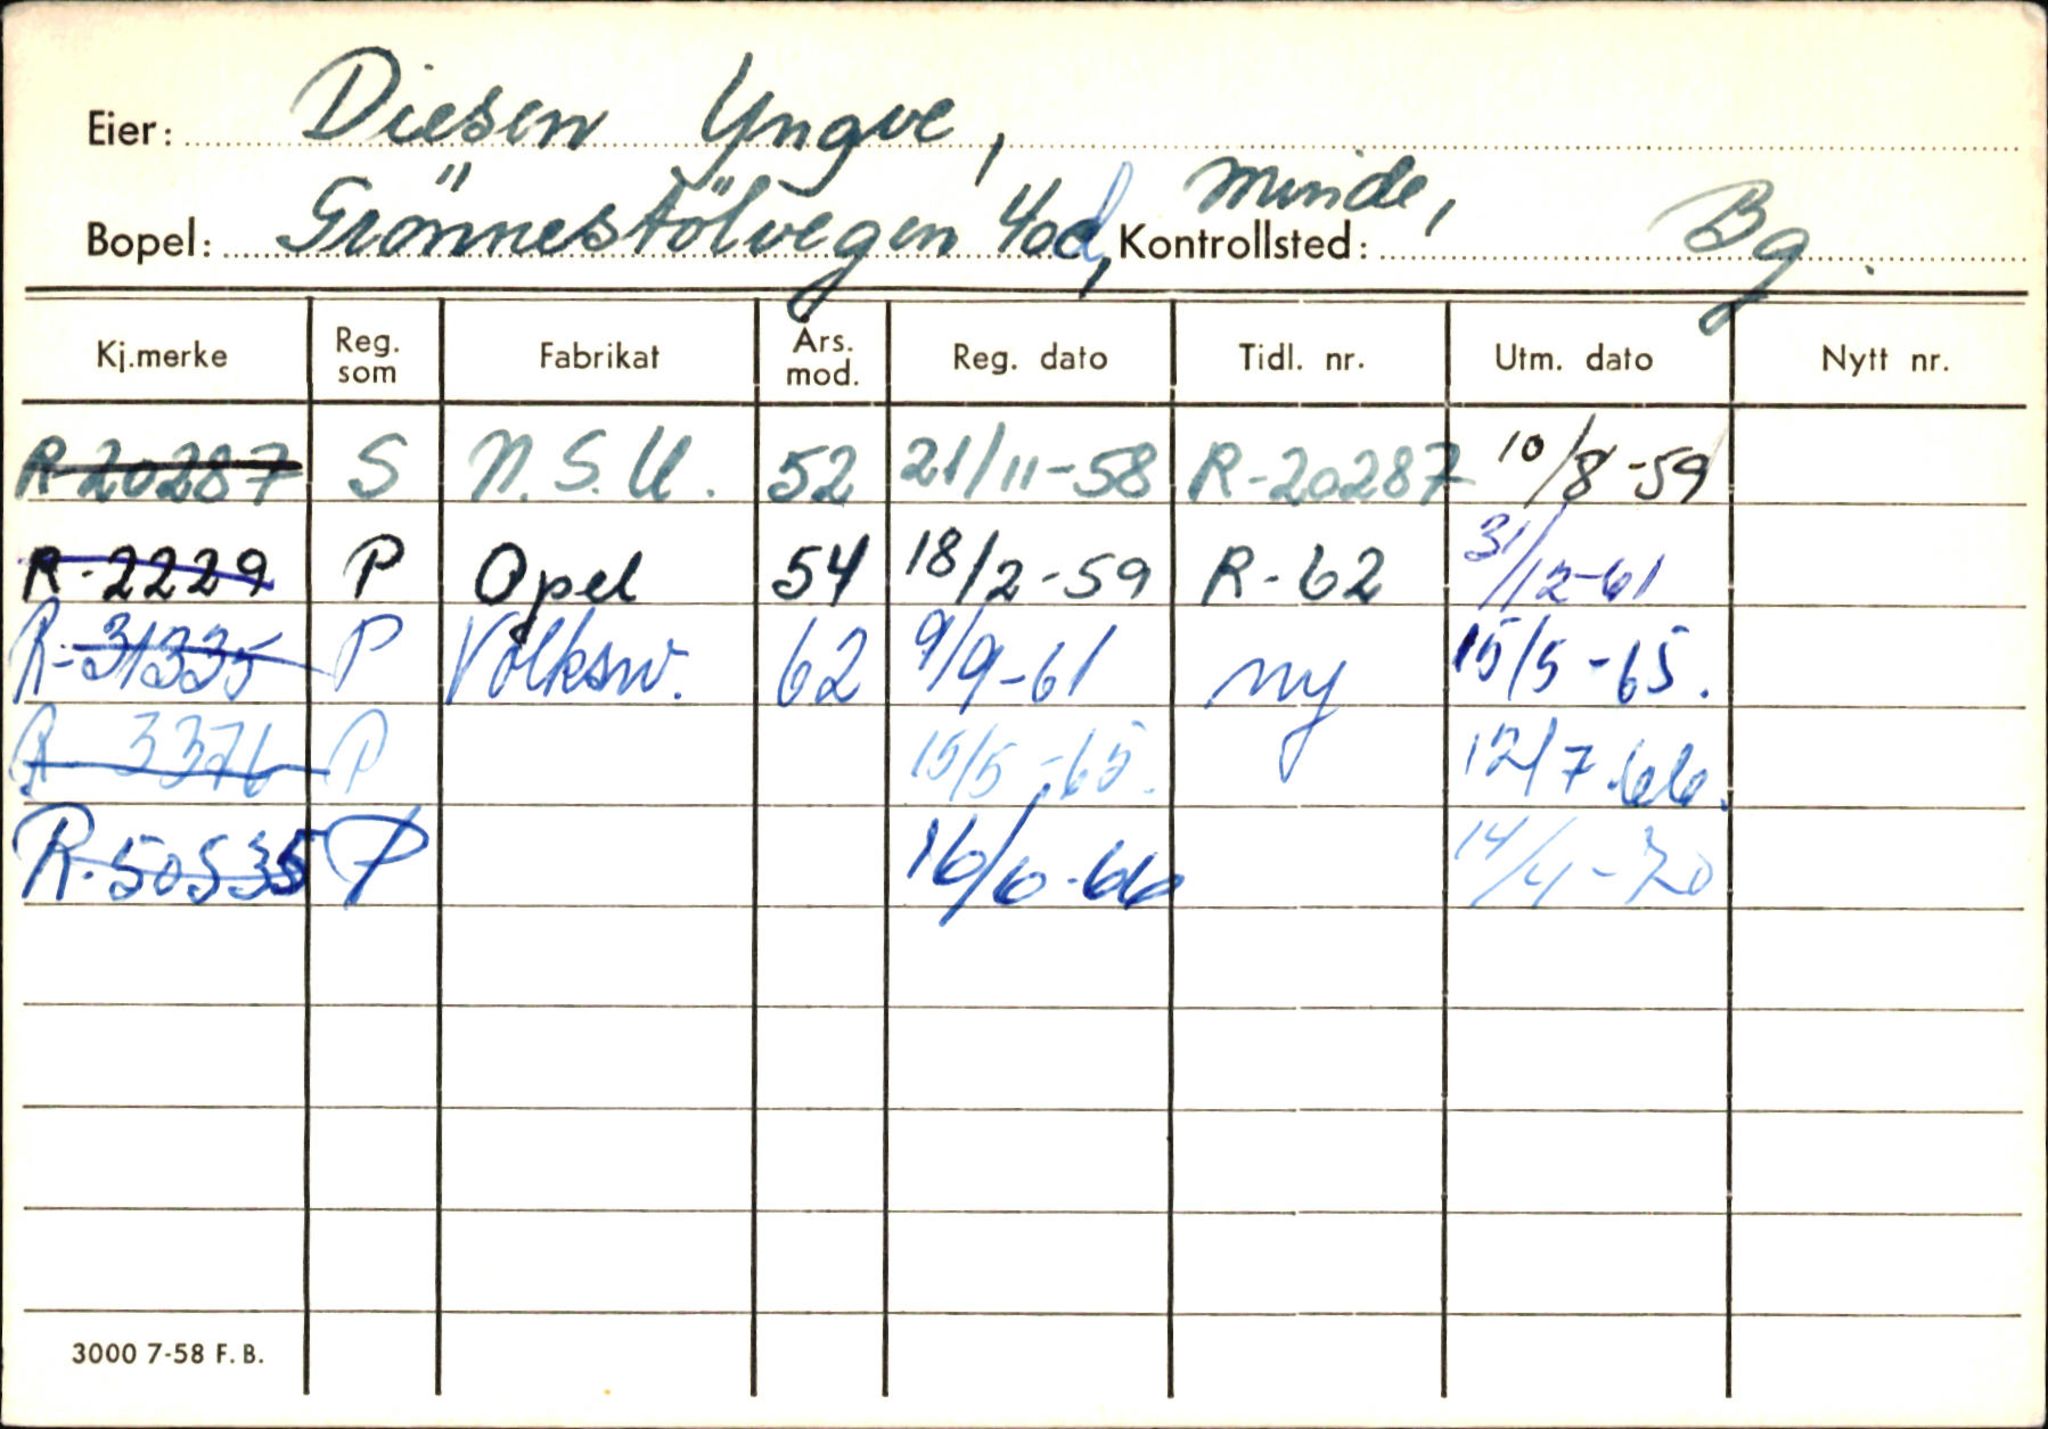 Eier: Diesen Yngve,
Bopel: Grönnestölvegen 40d, Minde, Kontrollsted: Bg.
Kj.merke Reg. som Fabrikat Års. mod. Reg. dato Tidl. nr. Utm. dato Nytt nr.
R-20287 S N.S.U. 52 21/11-58 R-20287 10/8-59
R-2229 P Opel 54 18/2-59 R-62 31/12-61
R-31335 P Volksw. 62 9/9-61 ny 15/5-65.
R 3376 P 15/5-65. 12/7-66.
R-50535 P 16/6-66 14/4-70
3000 7-58 F.B.